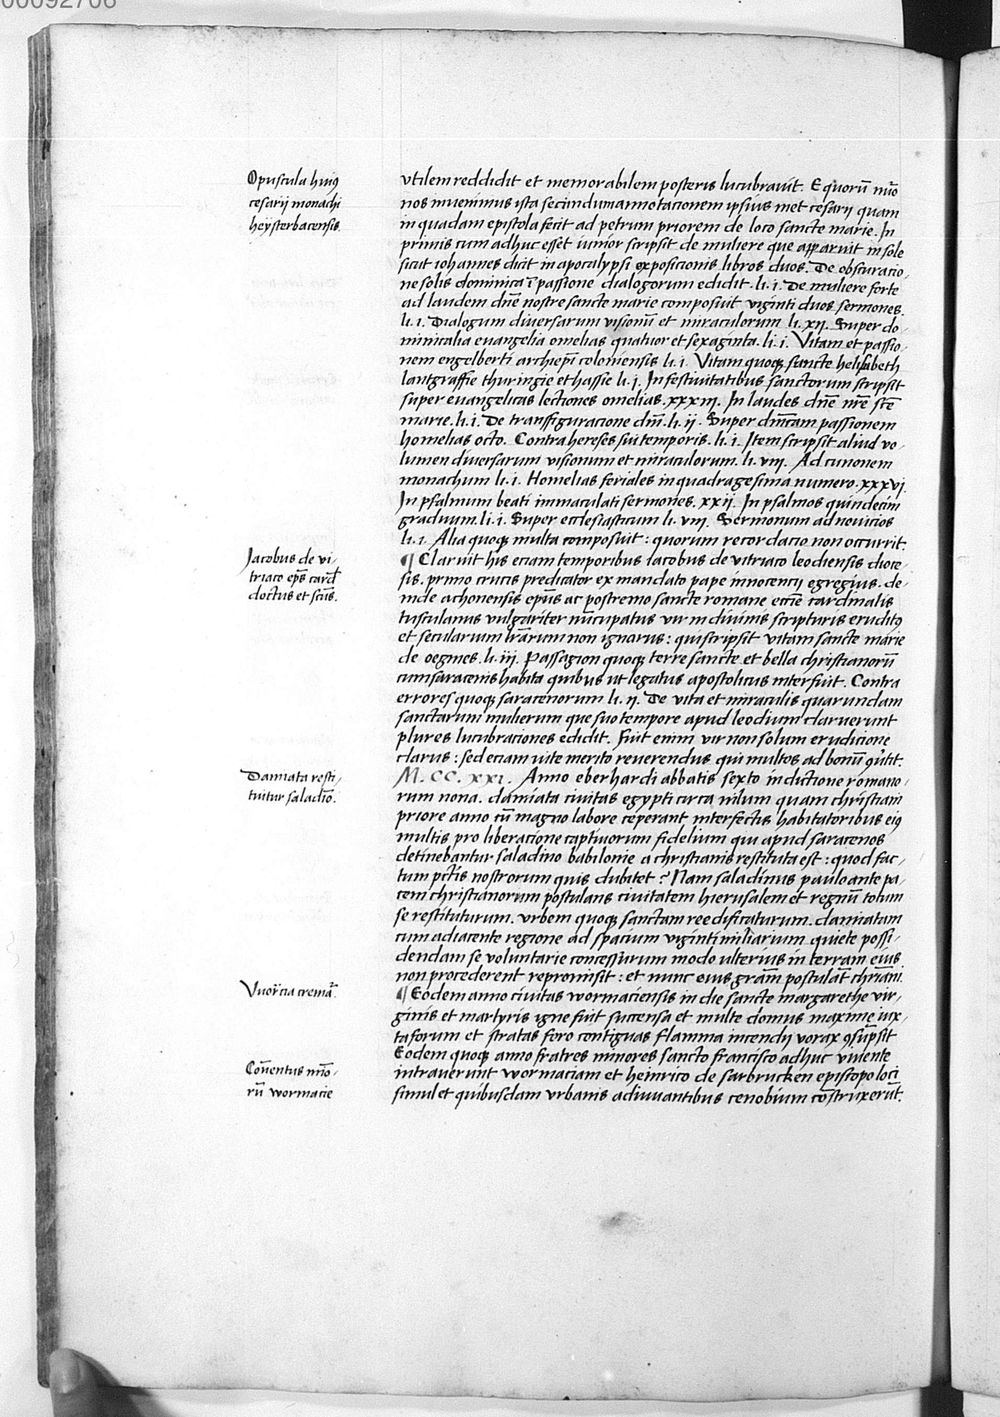 00092706
Opuscula huiꝯ
cesarij monachi
heysterbacensis.
vtilem reddidit et memorabilem posteris lucubravit. E quorū nūo
nos invenimus ista secundum annotacionem ipsius met cesarij quam
in quadam epistola fecit ad petrum priorem de loco sancte marie. In
primis cum adhuc esset iunior scripsit de muliere que apparuit in sole
sicut iohannes dicit in apocalypsi exposicionis libros duos. De obscuracio-
ne solis dominica ī passione dialogorum edidit. li. i. De muliere forte
ad laudem dn̄e nostre sancte marie composuit viginti duos sermones.
li. i. Dialogum diversarum visionū et miraculorum li. xij. Super do
minicalia evangelia omelias quatuor et sexaginta. li. i. Vitam et passio-
nem engelberti archiep̄i coloniensis li. i. Vitam quoqꝫ sancte helisabeth
lantgraffie thuringie et hassie li. j. In festivitatibus sanctorum scripsit
super evangelicas lectiones omelias. xxxiii. In laudes dn̄e nr̄e sc̄te
marie. li. i. De transfiguracione dn̄i. li. ij. Super dn̄icam passionem
homelias octo. Contra hereses sui temporis. li. i. Item scripsit aliud vo-
lumen diversarum visionum et miraculorum. li. viij. Ad cunonem
monachum li. i. Homelias feriales in quadragesima numero. xxxvi.
In psalmum beati immaculati sermones. xxij. In psalmos quindecim
graduum. li. i. Super ecclesiasticum li. viij. Sermonum ad novicios
li. i. Alia quoqꝫ multa composuit : quorum recordacio non occurrit.
Jacobus de vi-
triaco ep̄s card̄
doctus et sc̄us.
¶ Claruit his eciam temporibus iacobus de vitriaco leodiensis dioce-
sis. primo crucis predicator ex mandato pape innocencij egregius. de-
inde achonensis ep̄us ac postremo sancte romane ecc̄ie cardinalis
tusculanus vulgariter nūcupatus vir in divinis scripturis eruditꝯ
et secularium lr̄arum non ignarus : qui scripsit vitam sancte marie
de oegines. li. iij. Passagion quoqꝫ terre sancte et bella christianorū
cum saracenis habita quibus ut legatus apostolicus interfuit. Contra
errores quoqꝫ saracenorum li. ij. De vita et miraculis quarundam
sanctarum mulierum que suo tempore apud leodium claruerunt
plures lucubraciones edidit. Fuit enim vir non solum erudicione
clarus : sed eciam vite merito reverendus qui multos ad bonū
Damiata resti-
tuitur saladīo.
M. CC. xxi. Anno eberhardi abbatis sexto indictione romano-
rum nona. damiata civitas egypti circa nilum quam christiani
priore anno cū magno labore ceperant interfectis habitatoribus eiꝯ
multis pro liberacione captivorum fidelium qui apud saracenos
detinebantur saladino babilonie a christianis restituta est : quod fac-
tum pctīs nostrorum quis dubitet ? Nam saladinus paulo ante pa-
cem christianorum postulans civitatem hierusalem et regnū totum
se restituturum. urbem quoqꝫ sanctam reedificaturum. damiatam
cum adiacente regione ad spacium viginti miliarium quiete possi-
dendam se voluntarie concessurum modo ulterius in terram eius
non procederent repromisit : et nunc eius grām postulāt chriāni.
Vuor̄cia cremāt̄.
¶ Eodem anno civitas wormaciensis in die sancte margarethe vir-
ginis et martyris igne fuit succensa et multe domus maxime iux-
ta forum et stratas foro contiguas flamma incendij vorax ꝯsūpsit
Eodem quoqꝫ anno fratres minores sancto francisco adhuc vivente
Cōventus mīo-
rū wormacie
intraverunt wormaciam et heinrico de sarbrucken episcopo loci
simul et quibusdam urbanis adiuvantibus cenobium cōstruxerūt.